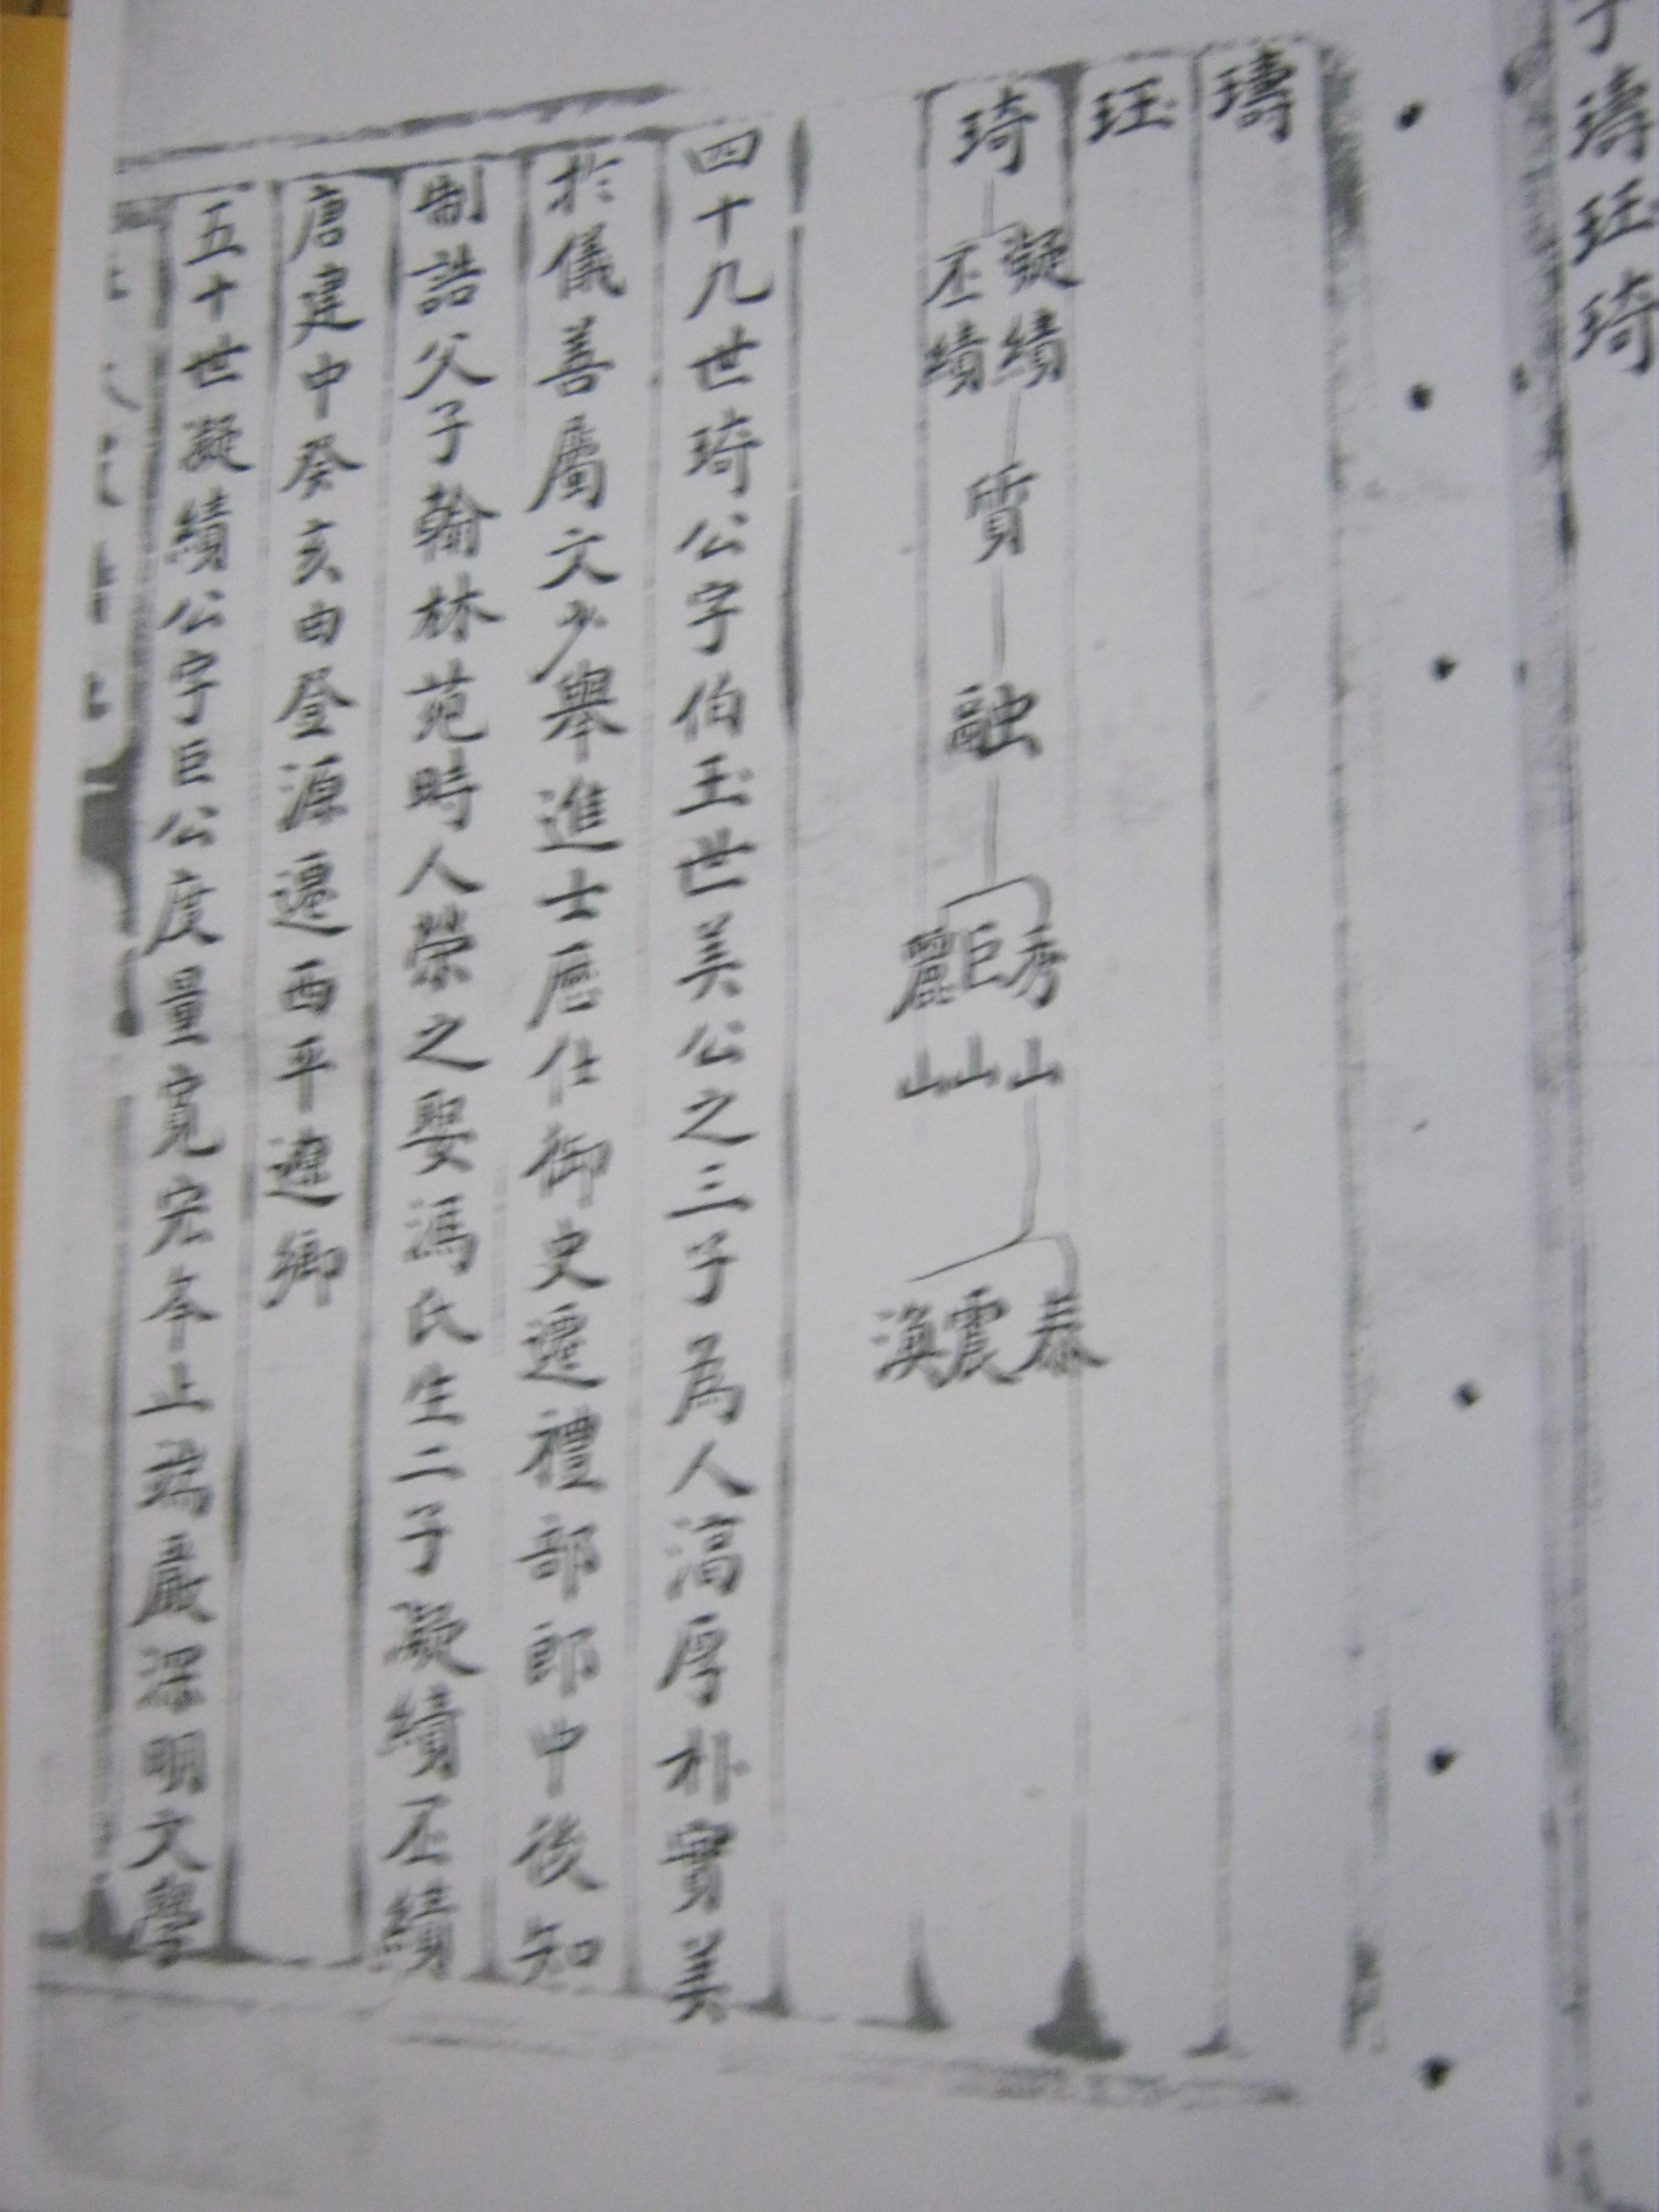 子璹珏琦
璹
珏
琦
凝績
丕績
質
融
秀山
巨山
麗山
泰
震
渙
四十九世琦公字伯玉世美公之三子為人湻厚朴實美
於儀善屬文少舉進士歷仕御史遷禮部郎中後知
制誥父子翰林苑時人榮之娶馮氏生二子凝績丕績
唐建中癸亥由登源遷西平遼鄉
五十世凝績公字巨公度量寬宏本止端嚴深明文學